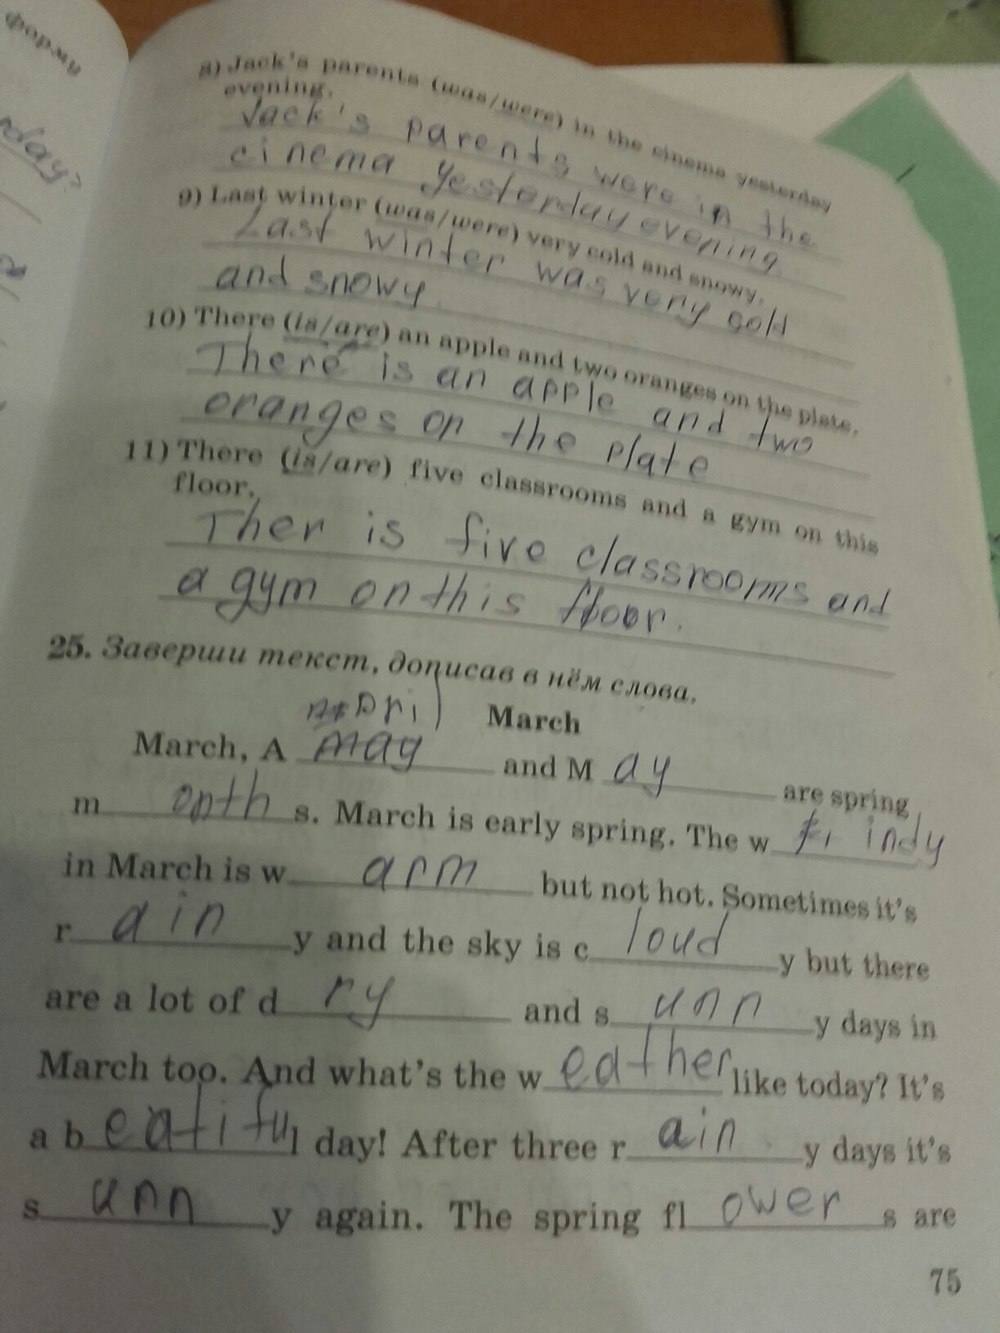 форму
8) Jack's parents (was/were) in the cinema yesterday
evening.
Jack's parents were in the
cinema yesterday evening
9) Last winter (was/were) very cold and snowy.
Last winter was very cold
and snowy
10) There (is/are) an apple and two oranges on the plate.
There is an apple and two
oranges on the plate
11) There (is/are) five classrooms and a gym on this
floor.
Ther is five classrooms and
a gym on this floor.
25. Заверши текст, дописав в нём слова.
March
pril
March, A may and M ay are spring
m onth s. March is early spring. The w indy
in March is w arm but not hot. Sometimes it's
r ain y and the sky is c loud y but there
are a lot of d ry and s unn y days in
March too. And what's the w eather like today? It's
a b eatifu l day! After three r ain y days it's
s unn y again. The spring fl ower s are
75